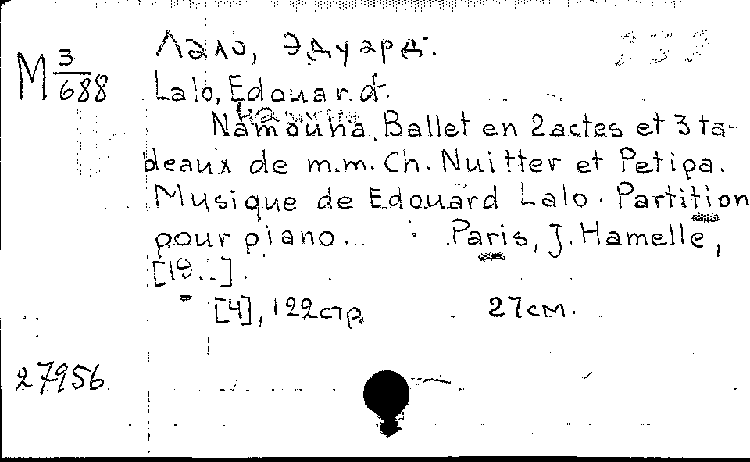 Лало, Эдуард.
М 3/688
Lalo, Edouard.
Namouna. Ballet en 2 actes et 3 ta-
bleaux de m.m. Ch. Nuitter et Petipa.
Musique de Edouard Lalo. Partition
pour piano... Paris, J. Hamelle,
[19..].
[4], 122 стр 27 см.
27956